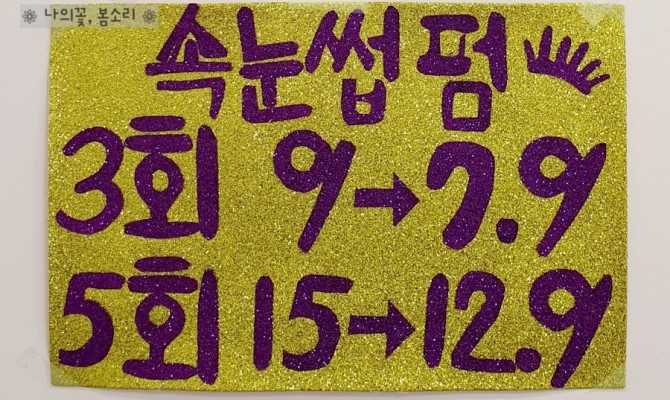 나의꽃, 봄소리
속눈썹 펌
3회 9→7.9
5회 15→12.9